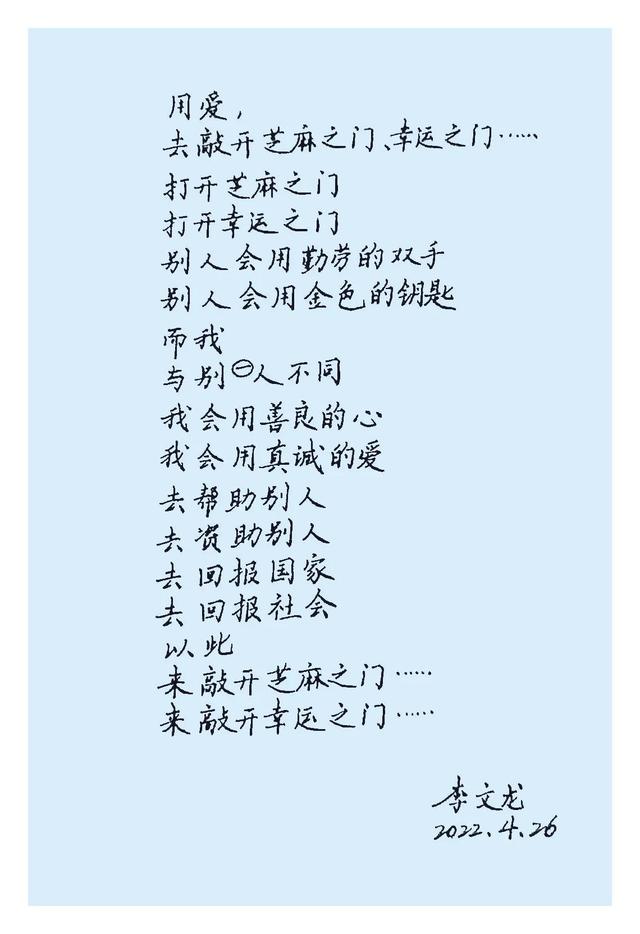 用爱，
去敲开芝麻之门、幸运之门……
打开芝麻之门
打开幸运之门
别人会用勤劳的双手
别人会用金色的钥匙
而我
与别㊀人不同
我会用善良的心
我会用真诚的爱
去帮助别人
去资助别人
去回报国家
去回报社会
以此
来敲开芝麻之门……
来敲开幸运之门……
李文龙
2022.4.26